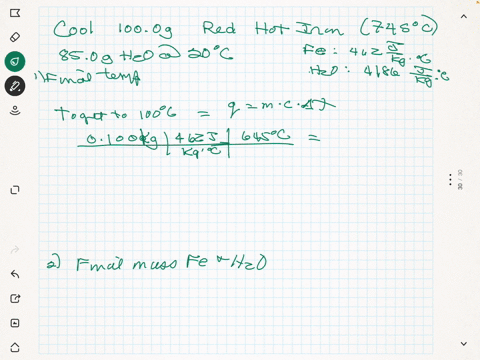 Cool 100.0g Red Hot Iron (745°C)
85.0g H2O @ 20°C
Fe: 462 J/kg·°C
H2O: 4186 J/kg·°C
1) Final temp
To get to 100°C = q = m·c·ΔT
0.100kg | 462 J | 645°C =
kg·°C
2) Final mass Fe + H2O